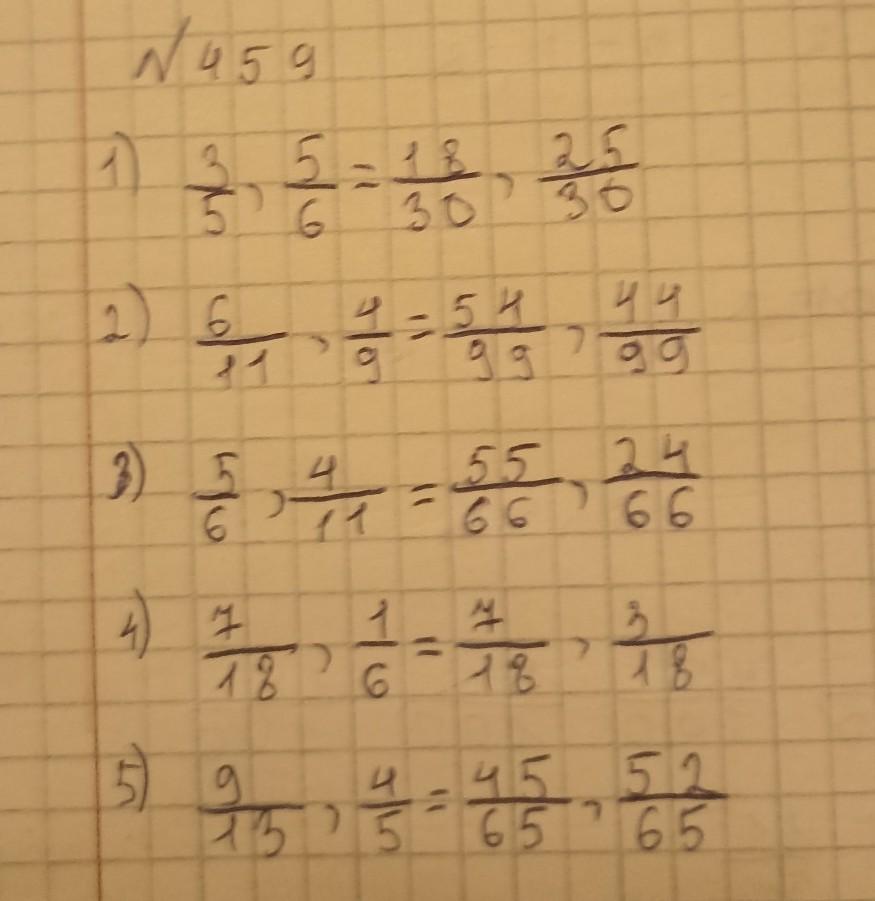 № 459
1) 3/5, 5/6 = 18/30, 25/30
2) 6/11, 4/9 = 54/99, 44/99
3) 5/6, 4/11 = 55/66, 24/66
4) 7/18, 1/6 = 7/18, 3/18
5) 9/13, 4/5 = 45/65, 52/65